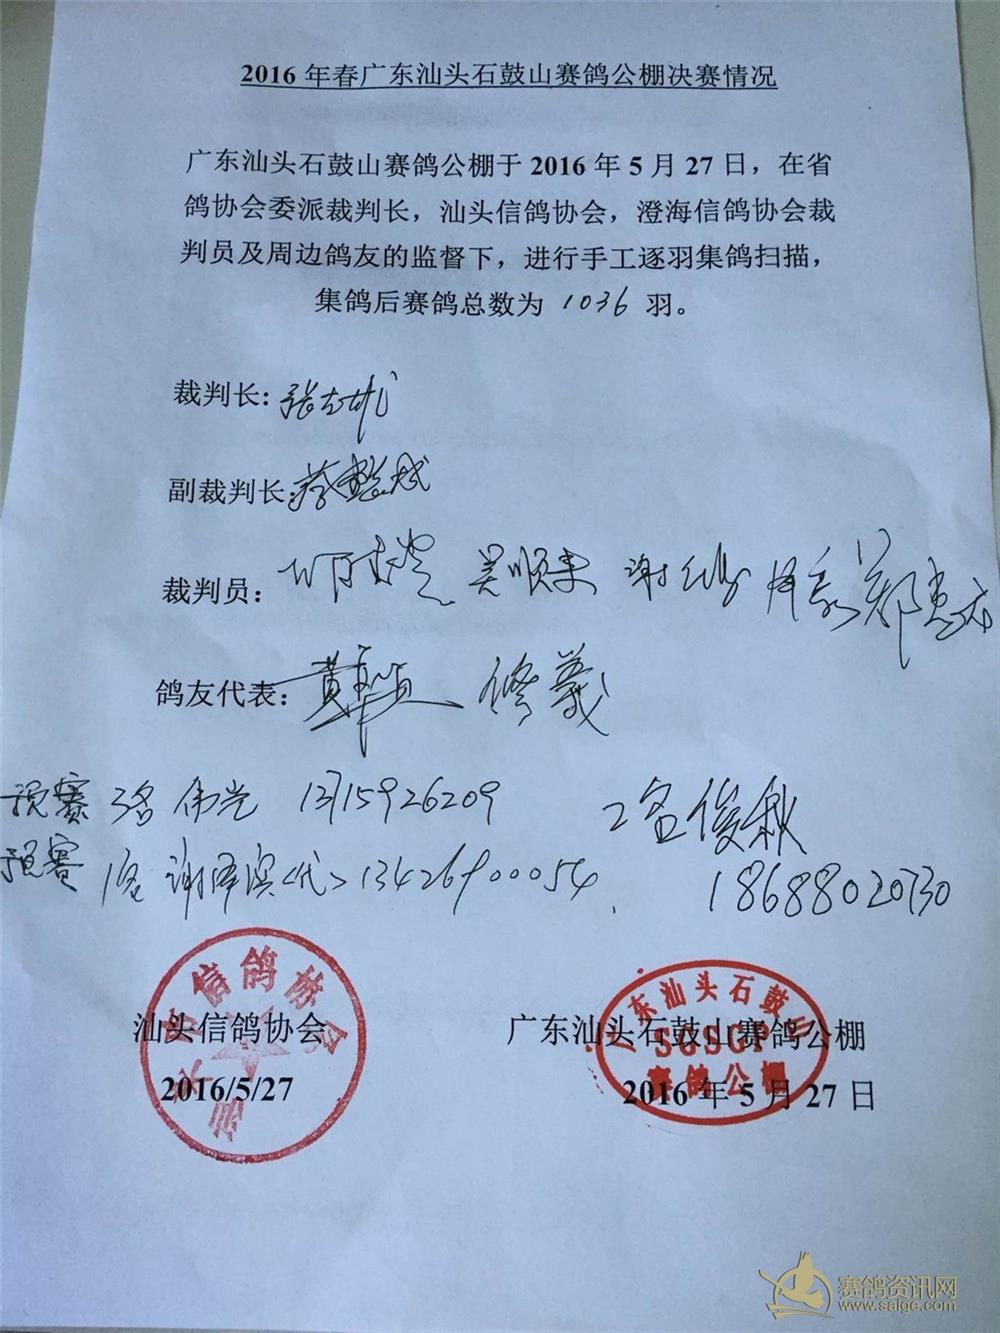 2016 年春广东汕头石鼓山赛鸽公棚决赛情况
广东汕头石鼓山赛鸽公棚于 2016 年 5 月 27 日，在省
鸽协会委派裁判长，汕头信鸽协会，澄海信鸽协会裁
判员及周边鸽友的监督下，进行手工逐羽集鸽扫描，
集鸽后赛鸽总数为 1036 羽。
裁判长：张
副裁判长：蔡
裁判员：吴顺 谢
鸽友代表：黄 修义
预赛 3名 伟 13715926209 2名 俊
预赛 1名 谢泽滨<代> 13426900054 18688020730
汕头市信鸽协会
汕头信鸽协会
2016/5/27
广东汕头石鼓山
广东汕头石鼓山赛鸽公棚
SGSGP
赛鸽公棚
2016 年 5 月 27 日
赛鸽资讯网
www.saige.com